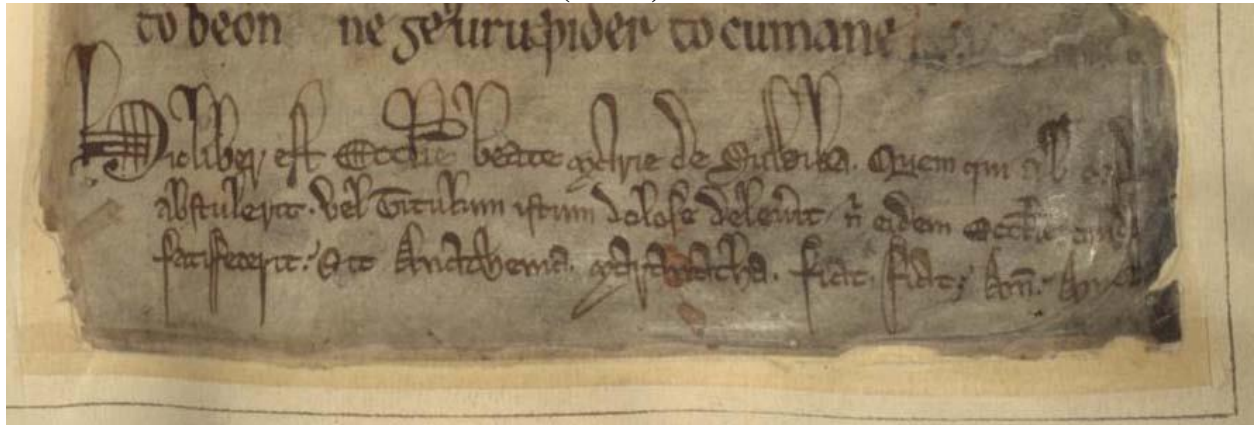 to beon ne geƿurꝥ ƿider to cumane
Hic liber est Eccl̄ie beate Marie de Suthwika. Quem qui ab ea
abstulerit. vel Titulum istum dolose deleu̾it n̄ eidem Eccl̄ie
satisfecerit. Sit Anathema. Maranatha. fiat. fiat. Am̄. Am̄